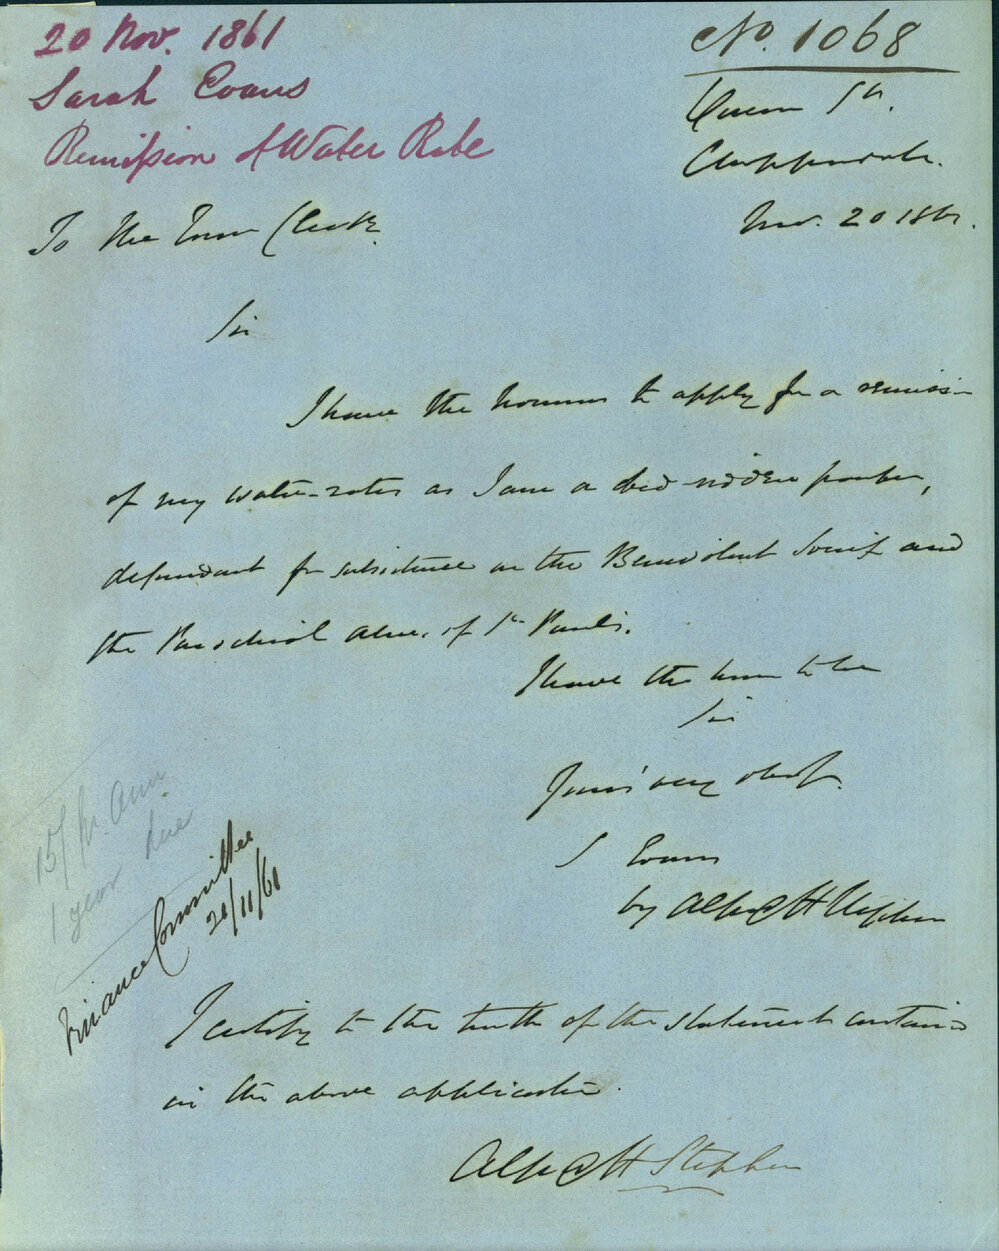 20 Nov. 1861
Sarah Evans
Remission of Water Rate
No. 1068
Queen St.
Chippendale.
Nov. 20 1861.
To the Town Clerk.
Sir
I have the honour to apply for a remission
of my water-rates as I am a bed-ridden pauper,
dependant for subsistence on the Benevolent Society and
the Parochial Alms. of St. Paul's.
I have the honor to be
Sir
Yours very obedt.
S Evans
by Alfred H Stephen
15/ pr. Ann
1 year due
Finance Committee
21/11/61
I certify to the truth of the statement contained
in the above application.
Alfred H Stephen